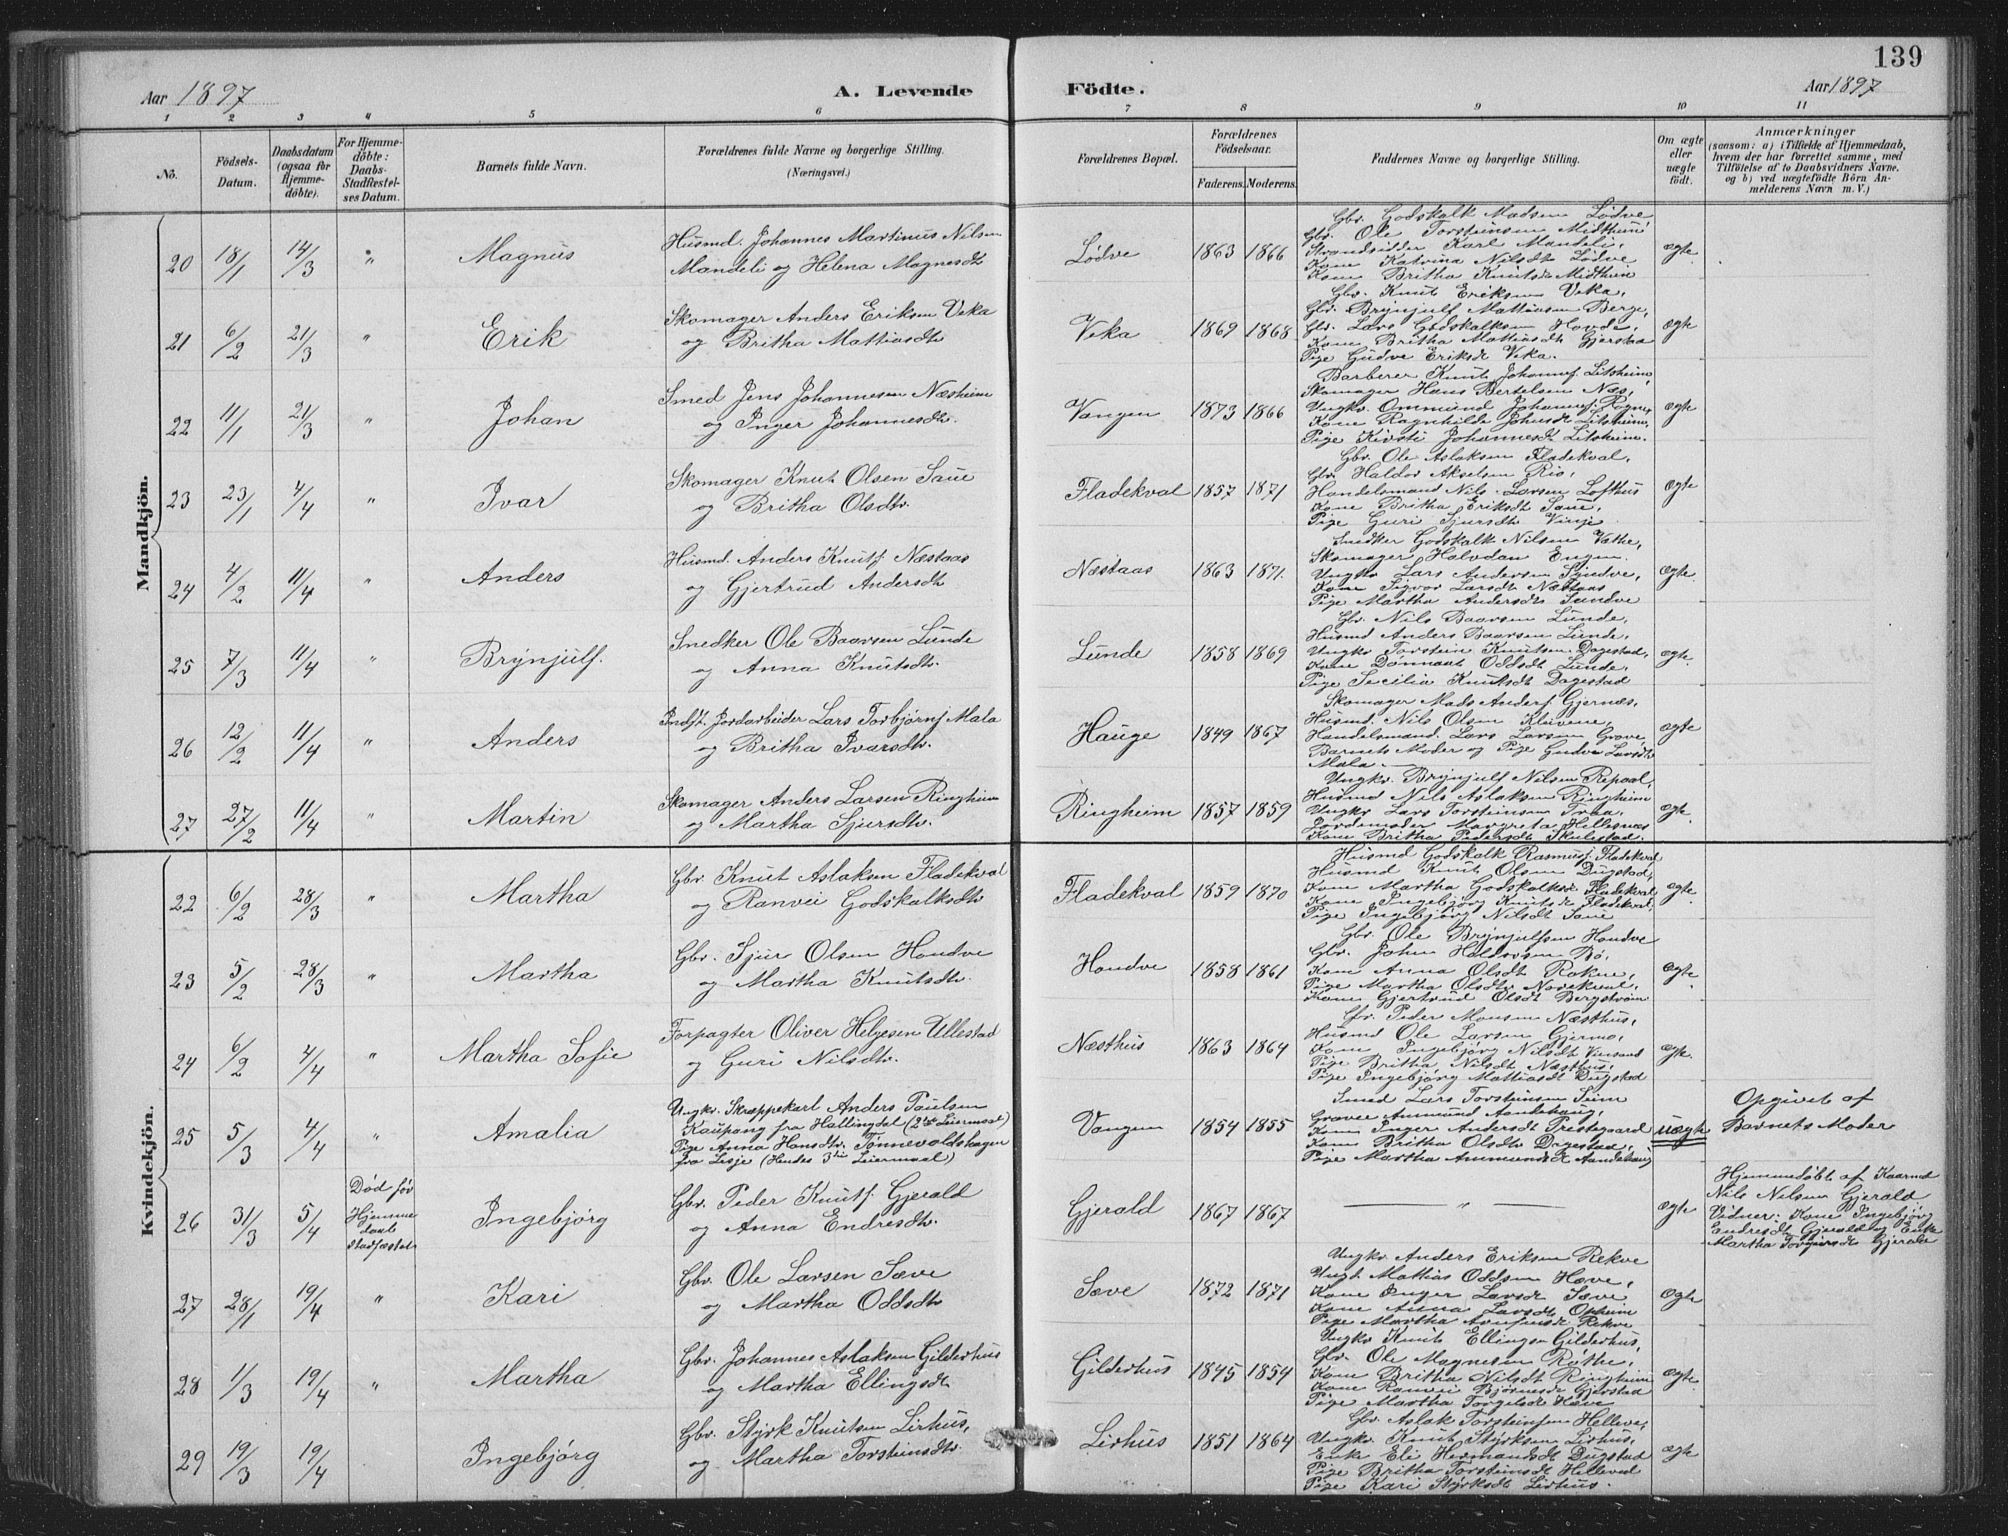 139
Aar 1897 A. Levende Födte. Aar 1897
1 2 3 4 5 6 7 8 9 10 11
No.
Födsels-
Datum.
Daabsdatum
(ogsaa for
Hjemme-
döbte).
For Hjemme-
döbte:
Daabs-
Stadfæstel-
ses Datum.
Barnets fulde Navn.
Forældrenes fulde Navne og borgerlige Stilling.
(Næringsvei.)
Forældrenes Bopæl.
Forældrenes
Födselsaar.
Faderens. Moderens.
Faddernes Navne og borgerlige Stilling.
Om ægte
eller
uægte
födt.
Anmærkninger
(saasom: a) i Tilfælde af Hjemmedaab,
hvem der har forrettet samme, med
Tilföielse af to Daabsvidners Navne.
og b) ved uægtefödte Börn An-
melderens Navn m. V.)
Mandkjön.
20 18/1 14/3 " Magnus
Husmd. Johannes Martinus Nilsen
Mandeli og Helena Magnesdtr
Lødve 1863 1866
Gbr. Godskalk Madsen Lødve,
Gbr. Ole Torsteinsen Midthun,
Strandsidder Karl Mandeli,
Kone Katrina Nilsdt Lødve
Kone Britha Knutsdt Midthun
ægte
21 6/2 21/3 " Erik
Skomager Anders Eriksen Veka
og Britha Mattiasdtr
Veka 1869 1868
Gbr. Knut Eriksen Veka,
Gbr. Brynjulf Mattiasen Berge,
Gbr. Lars Godskalksen Hovda,
Kone Britha Mattiasdt Gjerstad
Pige Gudve Eriksdt Veka.
ægte
22 11/1 21/3 " Johan
Smed Jens Johannesen Næsheim
og Inger Johannesdtr.
Vangen 1873 1866
Barberer Knut Johannesf. Litsheim,
Skomager Hans Bertelsen Næs,
Ungkr. Ommund Johannesf. Rogne,
Kone Ragnhilde Johnsdt Litsheim,
Pige Kirsti Johannesdt Litsheim.
ægte
23 23/1 4/4 " Ivar
Skomager Knut Olsen Saue
og Britha Olsdtr.
Fladekval 1857 1871
Gbr. Ole Aslaksen Fladekval,
Gbr. Haldor Akselsen Rio,
Handelsmand Nils Larsen Lofthus
Kone Britha Eriksdt Saue,
Pige Guri Sjursdtr Vinje
ægte
24 4/2 11/4 " Anders
Husmd. Anders Knutf. Næstaas
og Gjertrud Andersdtr
Næstaas 1863 1871.
Snedker Godskalk Nilsen Væthe,
Skomager Halvdan Engen,
Ungkr Lars Andersen Sundve,
Kone Sigvor Larsdt Næstaas
Pige Martha Andersdt Sundve
ægte
25 7/3 11/4 " Brynjulf.
Snedker Ole Baarsen Lunde
og Anna Knutsdtr.
Lunde 1858 1869
Gbr. Nils Baarsen Lunde,
Husmd Anders Baarsen Lunde,
Ungkr Torstein Knutsen Dagestad,
Kone Dønnaat Oddsdt Lunde,
Pige Secilia Knutsdt Dagestad
ægte
26 12/2 11/4 " Anders
Indst. Jordarbeider Lars Torbjørnf. Mala
og Britha Ivarsdtr.
Hauge 1849 1867
Skomager Mads Andersf. Gjernæs,
Husmd. Nils Olsen Kluvene,
Handelsmand Lars Larsen Grove
Barnets Moder og Pige Gudve Larsdt
Mala.
ægte
27 27/2 11/4 " Martin
Skomager Anders Larsen Ringheim
og Martha Sjursdtr.
Ringheim 1857 1859
Ungkr. Brynjulf Nilsen Repaal,
Husmd Nils Aslaksen Ringheim
Ungkr Lars Torsteinsen Traa,
Jordemoder Margreta Hellesnæs
Kone Britha Pedersdt Skulestad.
ægte.
Kvindekjön.
22 6/2 28/3 " Martha
Gbr Knut Aslaksen Fladekval
og Ranvei Godskalksdtr
Fladekval 1859 1870
Husmd Godskalk Rasmusf. Fladekval
Husmd Knut Olsen Dugstad,
Kone Martha Godskalksdt Fladekval,
Kone Ingebjørg Knutsdt Fladekval,
Pige Ingebjørg Nilsdt Saue
ægte.
23 5/2 28/3 " Martha
Gbr. Sjur Olsen Hondve
og Martha Knutsdtr.
Hondve 1858 1861
Gbr. Ole Brynjulfsen Hondve
Gbr. John Haldorsen Bø,
Kone Anna Olsdt Rokne,
Pige Martha Olsdtr Norekval,
Kone Gjertrud Olsdt Bergstrøm
ægte
24 6/2 4/4 " Martha Sofie
Forpagter Oliver Helgesen Ullestad
og Guri Nilsdtr.
Næsthus 1863 1864
Gbr. Peder Monsen Næsthus,
Husmd Ole Larsen Gjerme,
Kone Ingebjørg Nilsdt Vinsand
Pige Britha Nilsdt Næsthus,
Pige Ingebjørg Mattiasdt Dugstad
ægte.
25 5/3 4/4 " Amalia
Ungkr. Skræppekarl Anders Paulsen
Kaupang fra Hallingdal (2det Leiermaal)
Pige Anna Hansdtr. Tønnevoldshagen
fra Lesje (Hendes 3die Leiermaal)
Vangen 1854 1855
Smed Lars Torsteinsen Seim
Graver Ammund Aandehaug,
Kone Inger Andersdt Prestegaard
Kone Britha Olsdt Dagestad,
Pige Martha Ammundsdt Aandehaug
uægte
Opgivet af
Barnets Moder
26 31/3 5/4
Död för
Hjemme
daab
stadfæstet
Ingebjørg
Gbr. Peder Knutf. Gjerald
og Anna Endresdtr.
Gjerald 1867 1867
— " —
ægte
Hjemmedøbt af Kaarmd
Nils Nilsen Gjerald
Vidner: Kone Ingebjørg
Endresdt Gjerald og Enke
Martha Torgeirsdt Gjerald
27 28/1 19/4 " Kari
Gbr. Ole Larsen Sæve
og Martha Oddsdtr
Sæve 1872 1871
Ungkr Anders Eriksen Rekve
Ungd. Mattias Oddsen Hæve,
Kone Inger Larsdt Sæve
Kone Anna Larsdt Opheim
Pige Martha Arnfinsdt Rekve
Ægte
28 1/3 19/4 " Martha
Gbr. Johannes Aslaksen Gilderhus
og Martha Ellingsdtr
Gilderhus 1845 1854
Ungkr Knut Ellingsen Gilderhus,
Gbr. Ole Magnesen Røthe,
Kone Britha Nilsdt Ringheim
Kone Ranvei Bjørnsdt Gjerstad
Pige Martha Torgilsdt Hæve
ægte
29 19/3 19/4 Ingebjørg
Gbr. Styrk Knutsen Lirhus,
og Martha Torsteinsdtr.
Lirhus 1851 1864
Gbr. Aslak Torsteinsen Helleve,
Ungkr. Knut Styrksen Lirhus,
Enke Eli Hermundsdt Dugstad
Pige Britha Torsteinsdt Helleve
Pige Kari Styrksdt Lirhus.
ægte